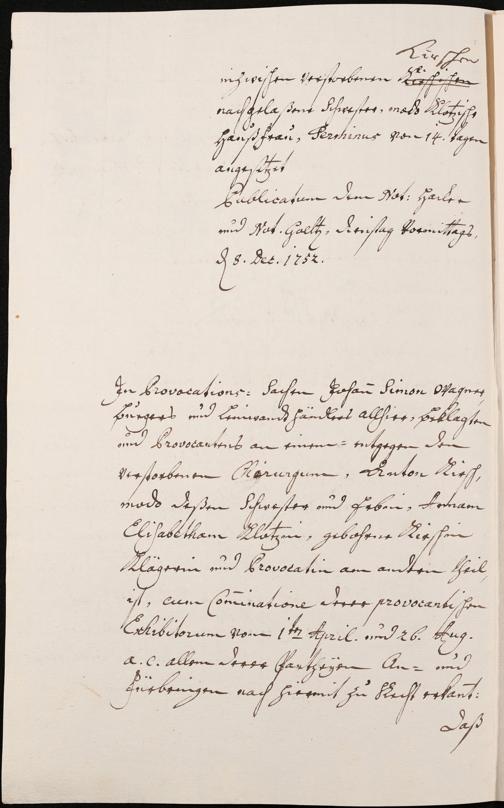 Kirschen
inzwischen verstorbenen Kirschischen
nachgelaßene Schwester, modo Klotzische
Haußfrau, Terminus von 14. tagen
angesetzet
Publicatum dem Not: Hacker
und Not. Goeltz, dienstag Vormittags,
d 8. Dec. 1752.
In Provocations= Sachen Johan Simon Wagner,
burgers und Leinwandshändlers allhier, beklagten
und Provocantens an einem= entgegen den
verstorbenen Chirurgum, Anton Kirsch,
modo deßen Schwester und Erbin, Annam
Elisabetham Klotzin, gebohrne Kirschin
Klägerin und Provocatin am andern theil,
ist, cum Comminatione derer provocantischen
Exhibitorum vom 1ten April. und 26. Aug.
a. c. allem derer Partheyen An= und
Fürbringen nach hiermit zu Recht erkant:
Daß